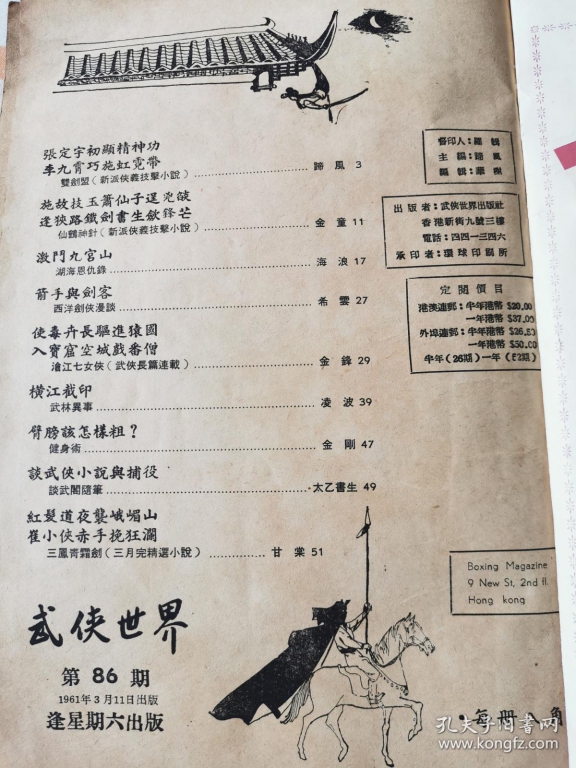 張定宇初顯精神功
李九霄巧施虹霓帶
雙劍盟（新派俠義技擊小說） 蹄風 3
施故技玉簫仙子逞兇燄
逢狹路鐵劍書生歛鋒芒
仙鶴神針（新派俠義技擊小說） 金童 11
激鬥九宮山
湖海恩仇錄 海浪 17
箭手與劍客
西洋劍俠漫談 希雲 27
使毒卉長驅進猿國
入寶窟空城戲番僧
滄江七女俠（武俠長篇連載） 金鋒 29
橫江截印
武林異事 凌波 39
臂膀該怎樣粗？
健身術 金剛 47
談武俠小說與捕役
談武閣隨筆 太乙書生 49
紅髮道夜襲峨嵋山
崔小俠赤手挽狂瀾
三鳳青霜劍（三月完精選小說） 甘棠 51
武俠世界
第 86 期
1961年3月11日出版
逢星期六出版
督印人：羅
主編：蹄風
編輯：
出版者：武俠世界出版社
香港新街九號三樓
電話：四四一三四六
承印者：環球印刷所
定閱價目
港澳連郵：半年港幣 $20.00
一年港幣 $37.00
外埠連郵：半年港幣 $26.50
一年港幣 $50.00
半年（26期）一年（52期）
Boxing Magazine
9 New St, 2nd fl.
Hong kong
•每冊八角
孔夫子旧书网
www.kongfz.com